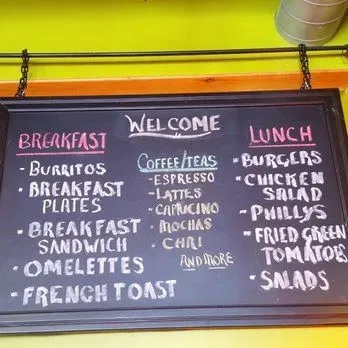 WELCOME
BREAKFAST
- BURRITOS
- BREAKFAST
PLATES
- BREAKFAST
SANDWICH
- OMELETTES
- FRENCH TOAST
COFFEE/TEAS
- ESPRESSO
- LATTES
- CAPUCINO
- MOCHAS
- CHAI
AND MORE
LUNCH
- BURGERS
- CHICKEN
SALAD
- PHILLYS
- FRIED GREEN
TOMATOES
- SALADS